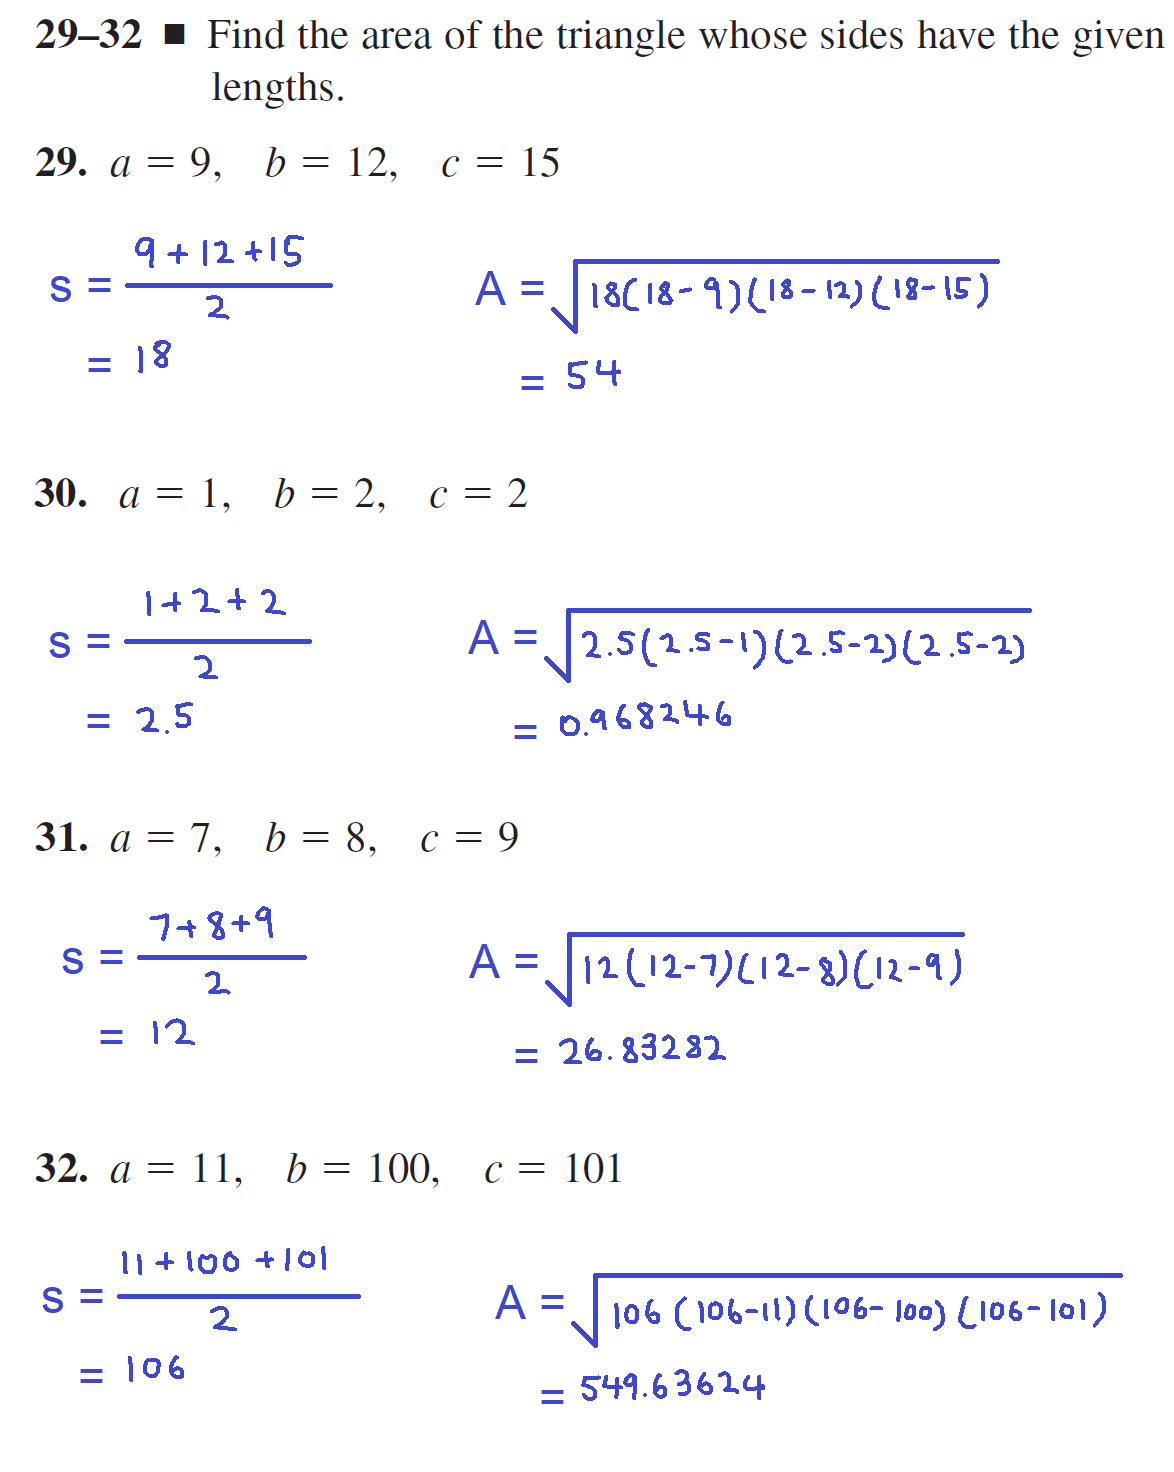 29–32 ■ Find the area of the triangle whose sides have the given
lengths.
29. a = 9, b = 12, c = 15
s = 9 + 12 + 15 / 2 A = √18(18 - 9)(18 - 12)(18 - 15)
= 18 = 54
30. a = 1, b = 2, c = 2
s = 1 + 2 + 2 / 2 A = √2.5(2.5 - 1)(2.5 - 2)(2.5 - 2)
= 2.5 = 0.968246
31. a = 7, b = 8, c = 9
s = 7 + 8 + 9 / 2 A = √12(12 - 7)(12 - 8)(12 - 9)
= 12 = 26.83282
32. a = 11, b = 100, c = 101
s = 11 + 100 + 101 / 2 A = √106(106 - 11)(106 - 100)(106 - 101)
= 106 = 549.63624